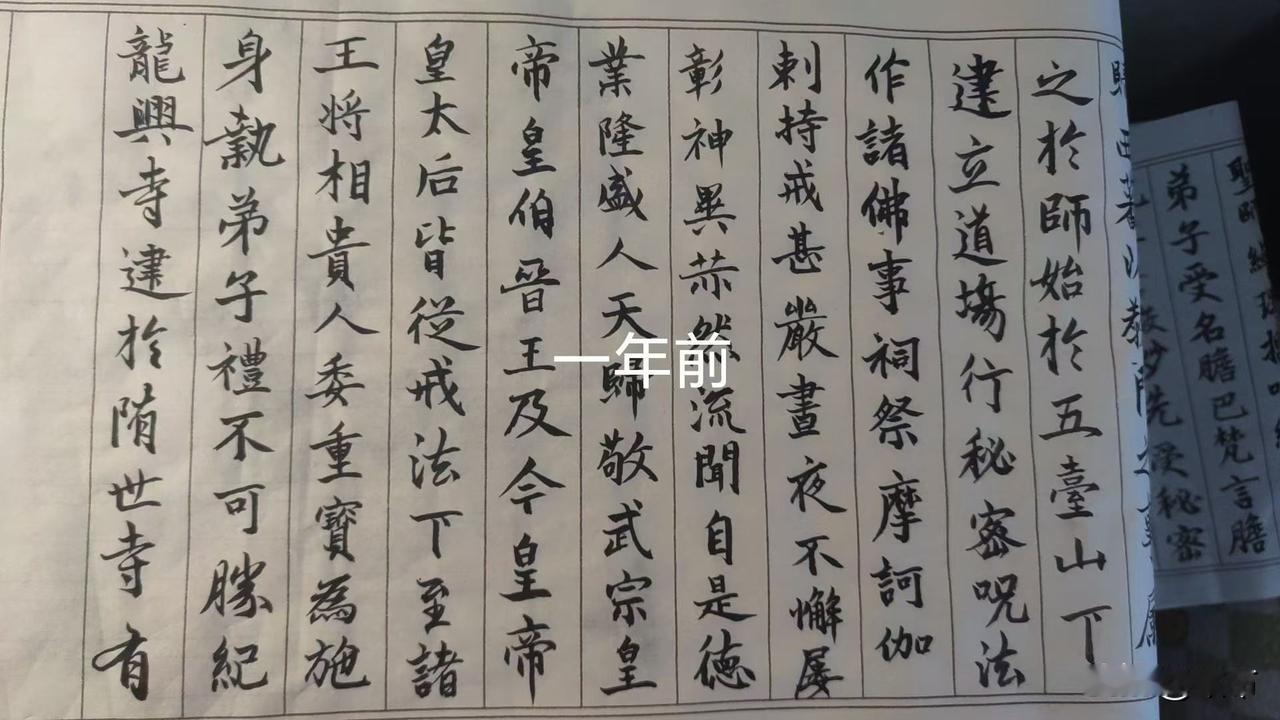 聖師
弟子受名膽巴梵言膽
妙先受秘密
之於師始於五臺山下
建立道場行秘密呪法
作諸佛事祠祭摩訶伽
剌持戒甚嚴晝夜不懈屢
彰神異赫然流聞自是德
業隆盛人天歸敬武宗皇
帝皇伯晉王及今皇帝
皇太后皆從戒法下至諸
王將相貴人委重寶為施
身執弟子禮不可勝紀
龍興寺建於隋世寺有
一年前